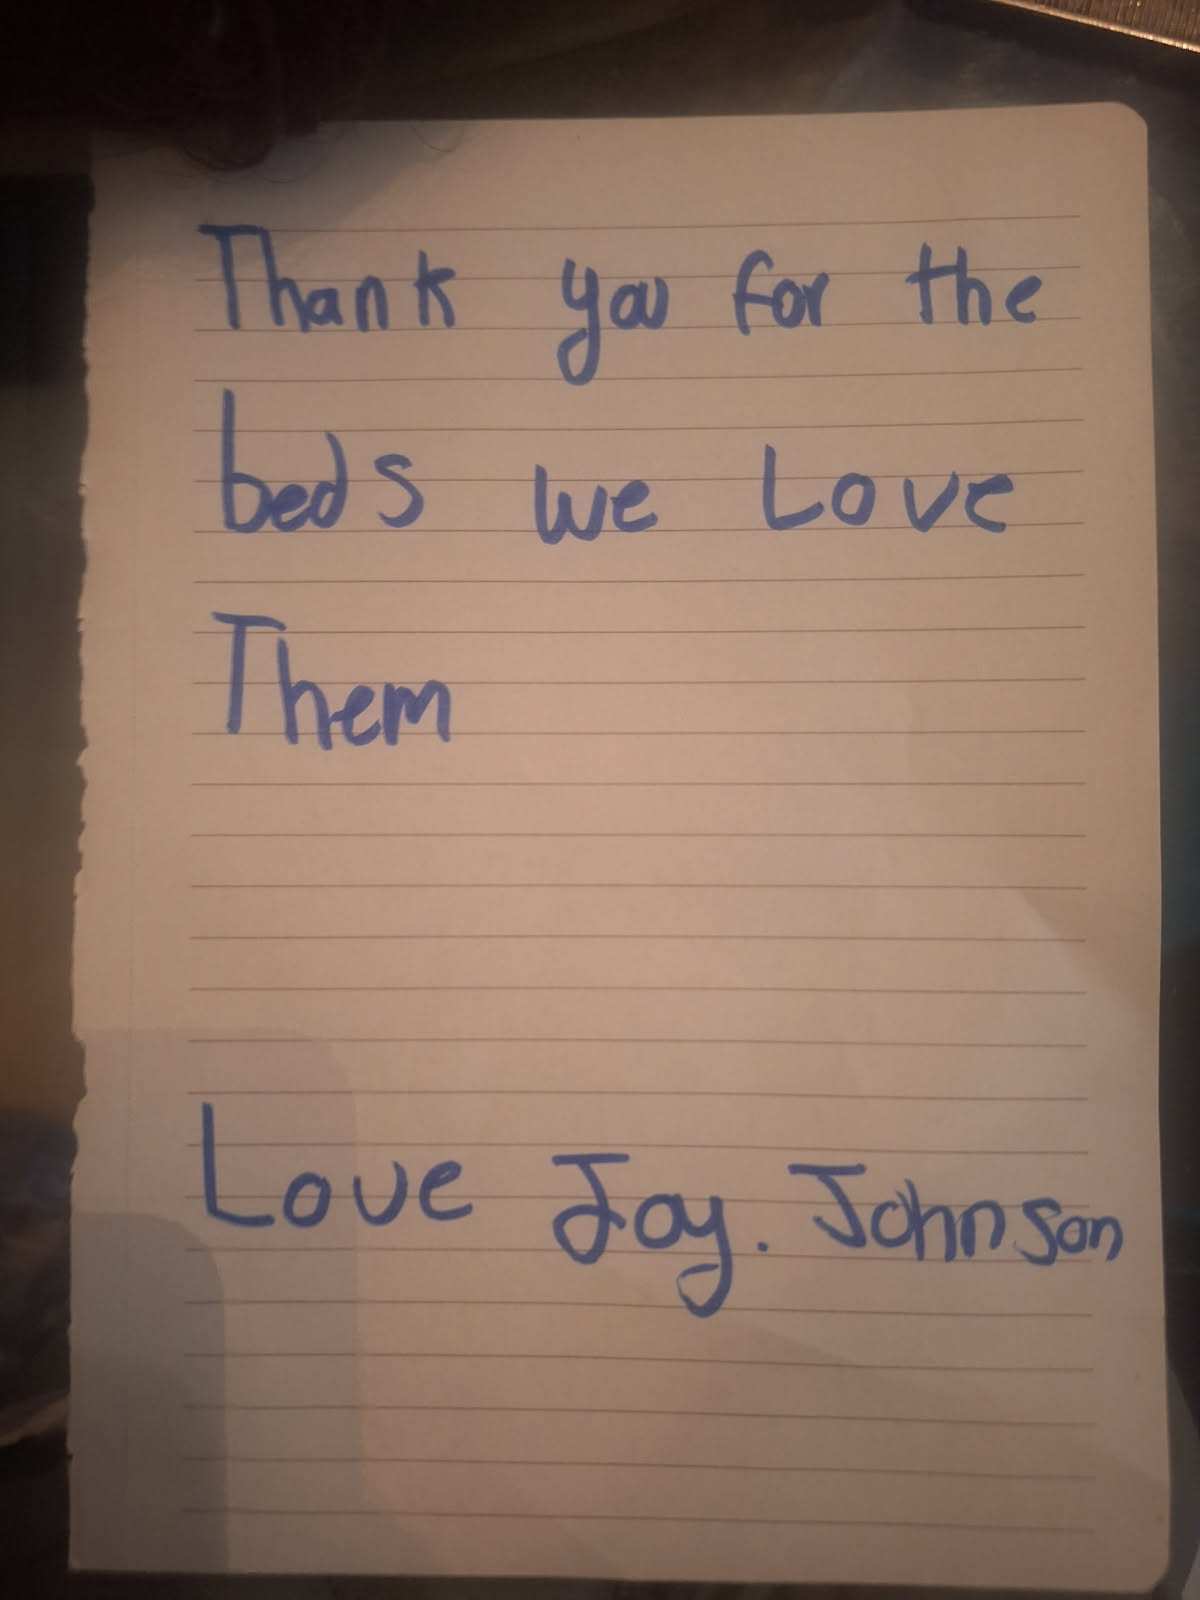 Thank you for the
beds we Love
Them
Love Joy. Johnson